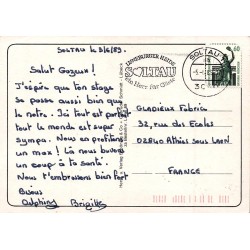 SOLTAU le 3/6/89.
Salut Gugusse!
J'espère que ton stage
se passe aussi bien que
le notre. Ici tout est parfait
tout le monde est super
sympa. Nous en profitons
un max! Là nous buvons
un coup à ta santé.
Nous t'embrassons bien fort
Bisous
Delphine Brigitte
LÜNEBURGER HEIDE
SOLTAU
Ein Herz für Gäste
SOLTAU
60
GLADIEUX Fabrice
32, rue des Ecoles
02840 Athies sous Laon
FRANCE